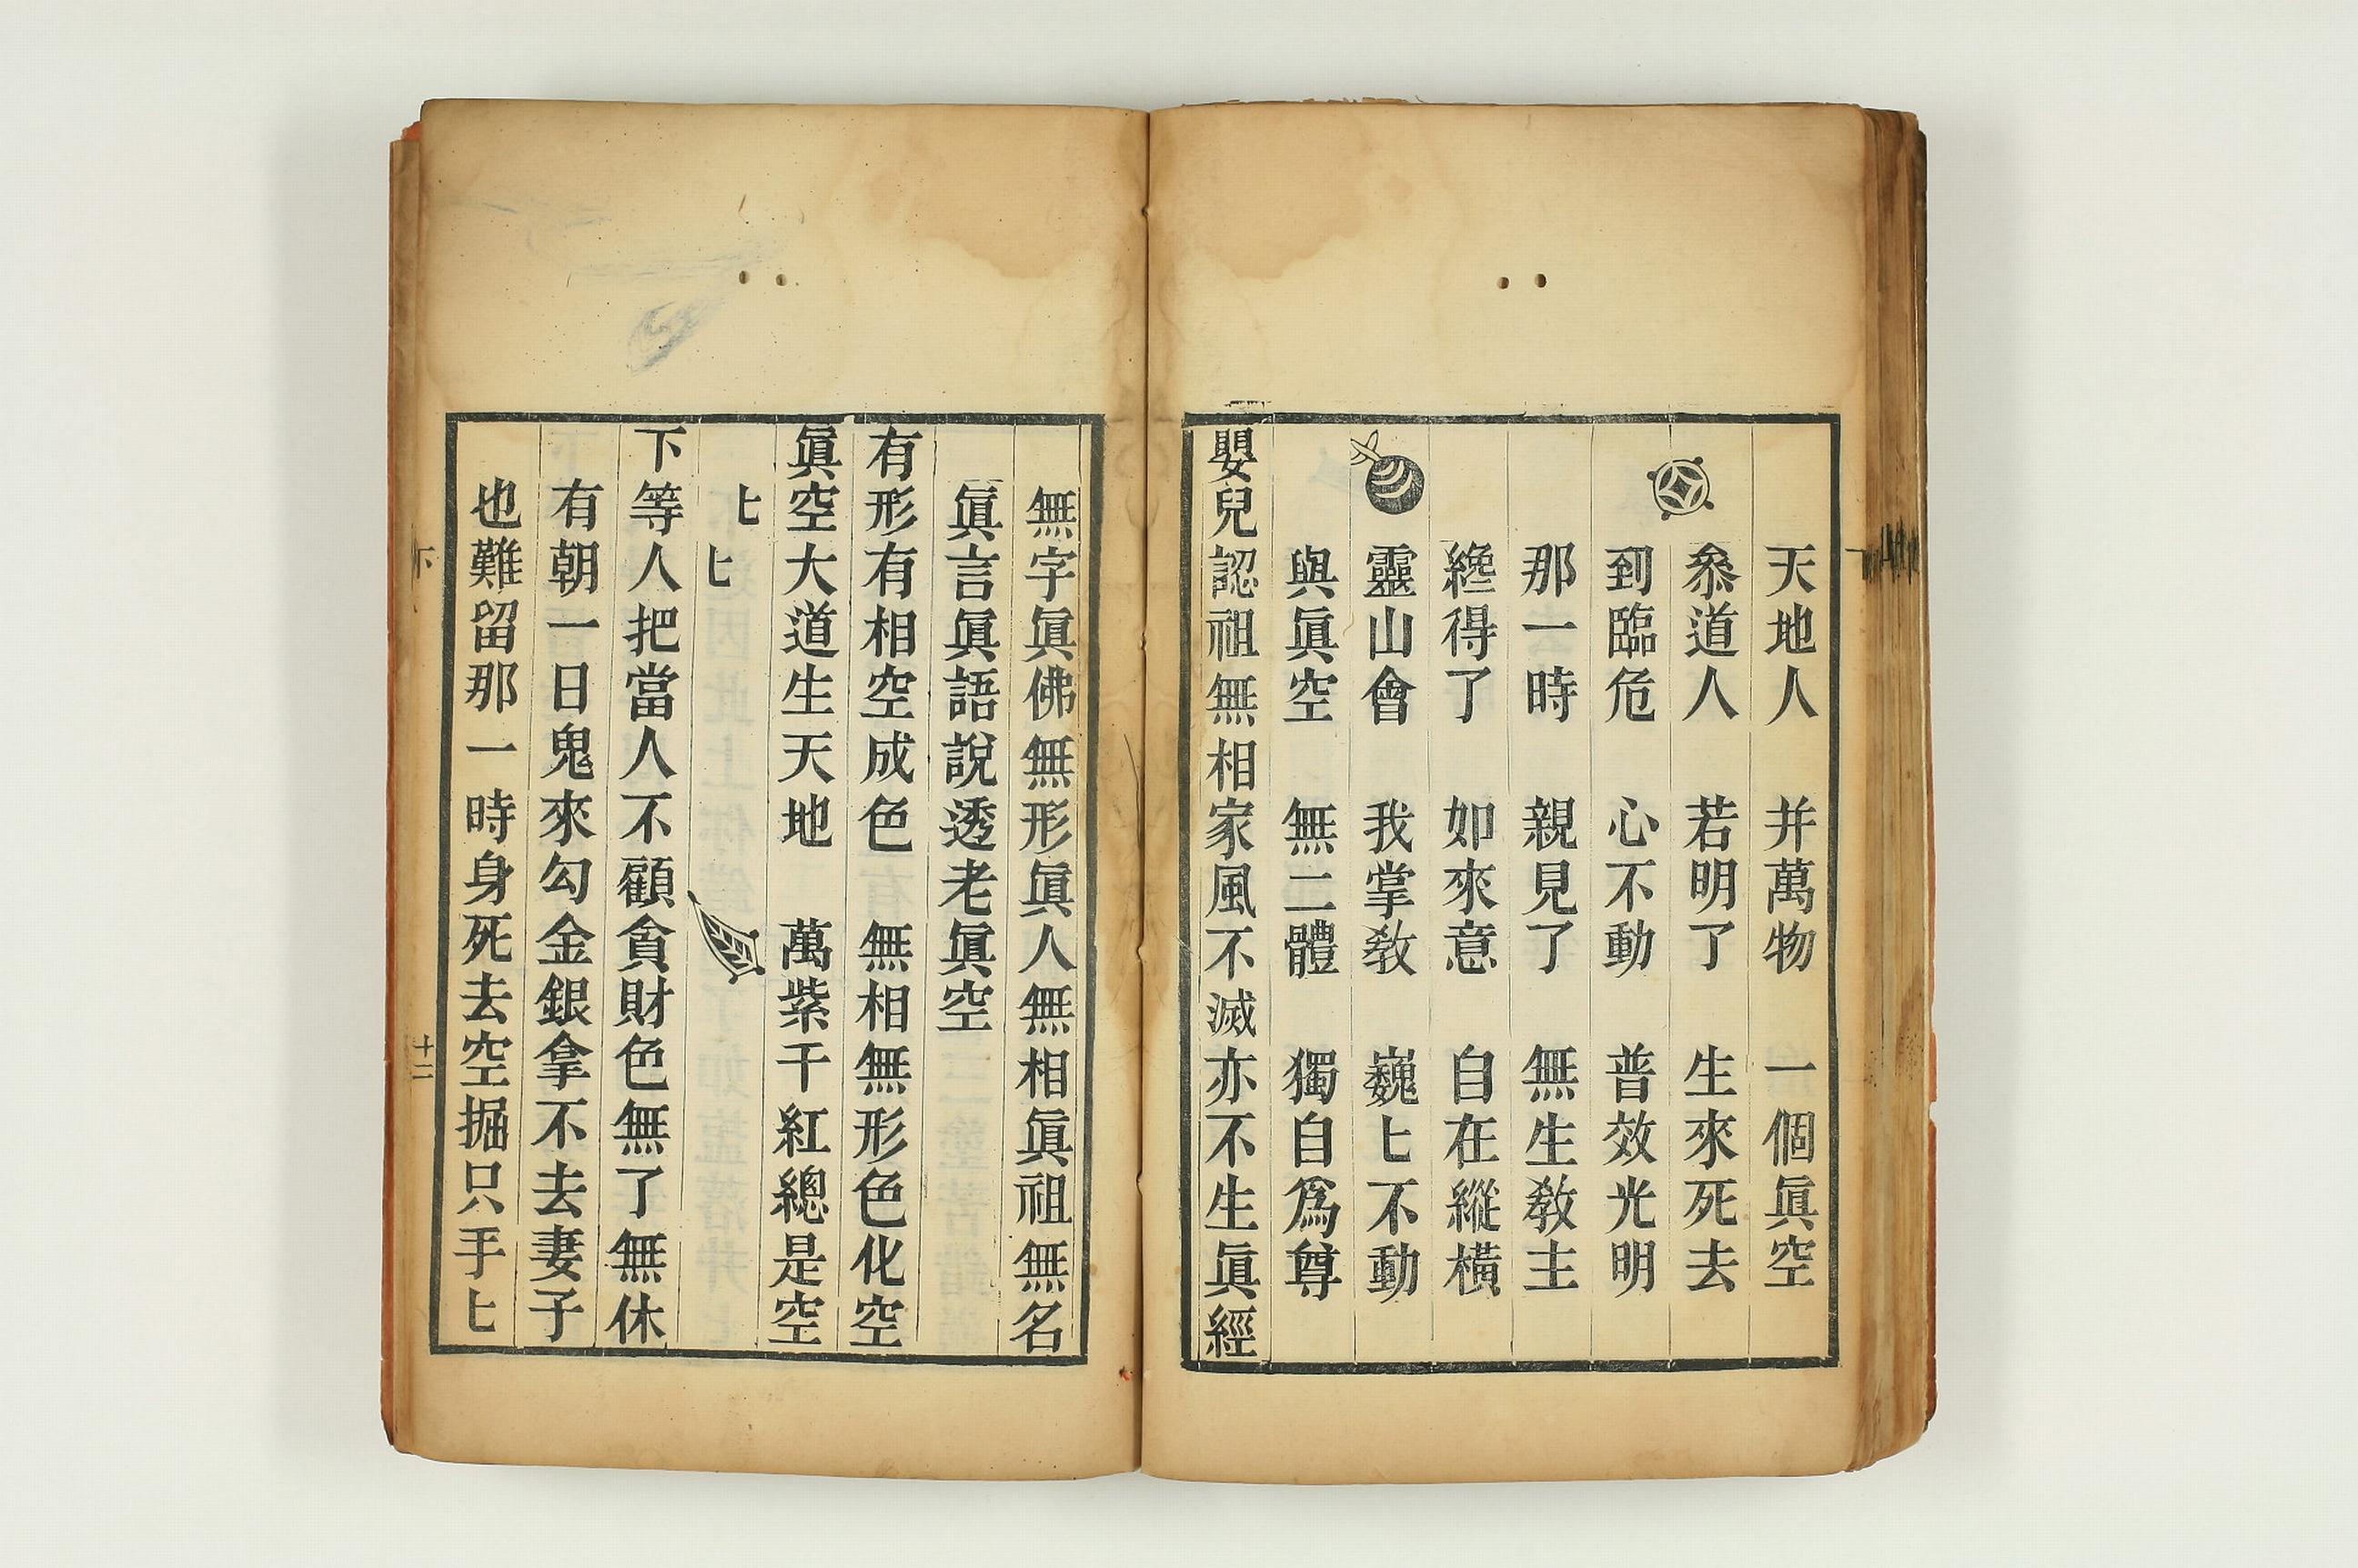 天地人 并萬物 一個眞空
叅道人 若明了 生來死去
到臨危 心不動 普效光明
那一時 親見了 無生教主
纔得了 如來意 自在縱橫
靈山會 我掌教 巍〻不動
與眞空 無二體 獨自爲尊
嬰兒認祖無相家風不滅亦不生眞經
無字眞佛無形眞人無相眞祖無名
眞言眞語說透老眞空
有形有相空成色 無相無形色化空
眞空大道生天地 萬紫千紅總是空
〻 〻
下等人把當人不顧貪財色無了無休
有朝一日鬼來勾金銀拿不去妻子
也難留那一時身死去空掘只手〻
下 十二